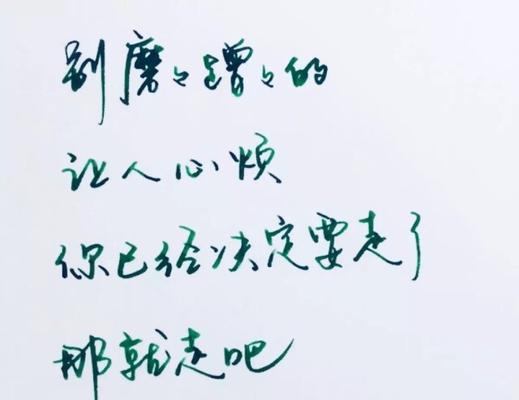 别磨々蹭々的
让人心烦
你已经决定要走了
那就走吧